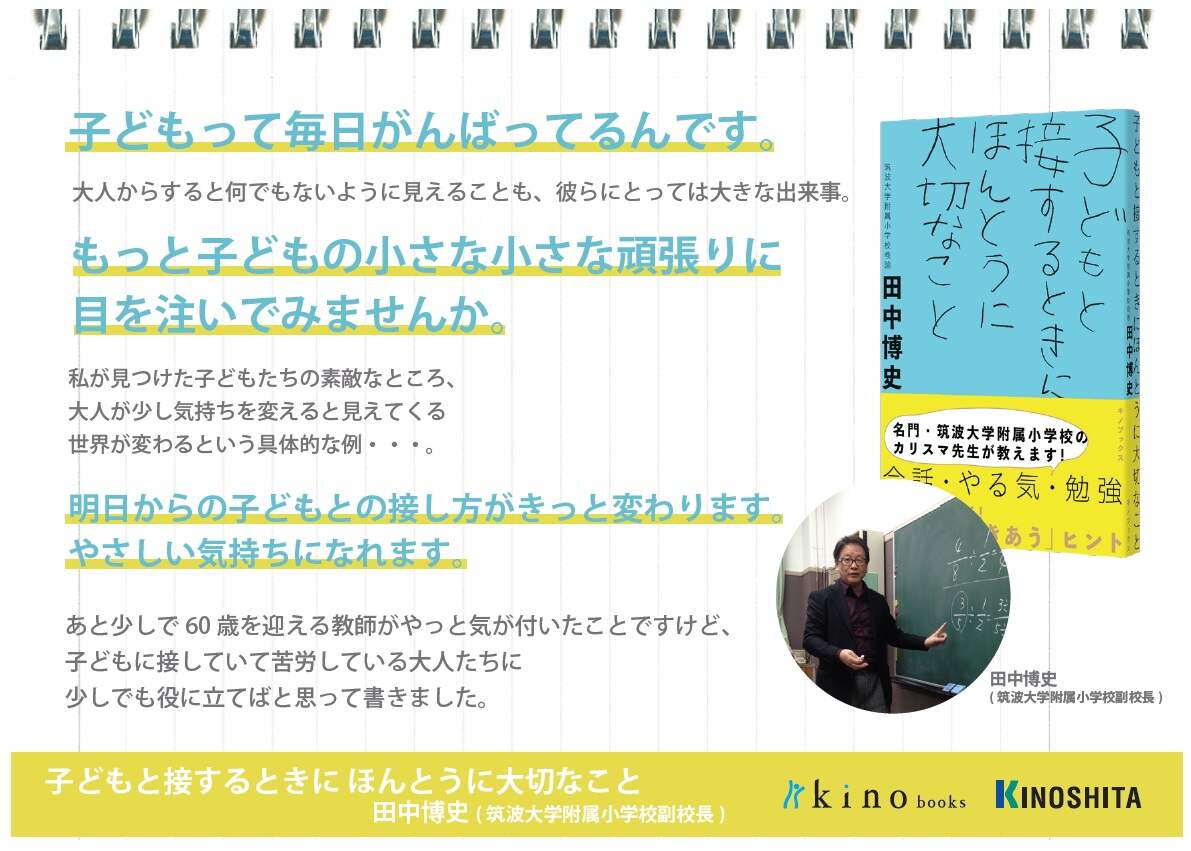 子どもって毎日がんばってるんです。
大人からすると何でもないように見えることも、彼らにとっては大きな出来事。
もっと子どもの小さな小さな頑張りに
目を注いでみませんか。
私が見つけた子どもたちの素敵なところ、
大人が少し気持ちを変えると見えてくる
世界が変わるという具体的な例・・・。
明日からの子どもとの接し方がきっと変わります。
やさしい気持ちになれます。
あと少しで 60 歳を迎える教師がやっと気が付いたことですけど、
子どもに接していて苦労している大人たちに
少しでも役に立てばと思って書きました。
子どもと
接するときに
ほんとうに
大切なこと
田中博史
子どもと接するときにほんとうに大切なこと
田中博史
キノブックス
名門・筑波大学附属小学校の
カリスマ先生が教えます!
会話・やる気・勉強
きあう」ヒント
4/8 ÷ 1/2 =
3/5 ÷ 1/2 =
田中博史
( 筑波大学附属小学校副校長 )
子どもと接するときに ほんとうに大切なこと
田中博史 ( 筑波大学附属小学校副校長 )
kino books
KINOSHITA